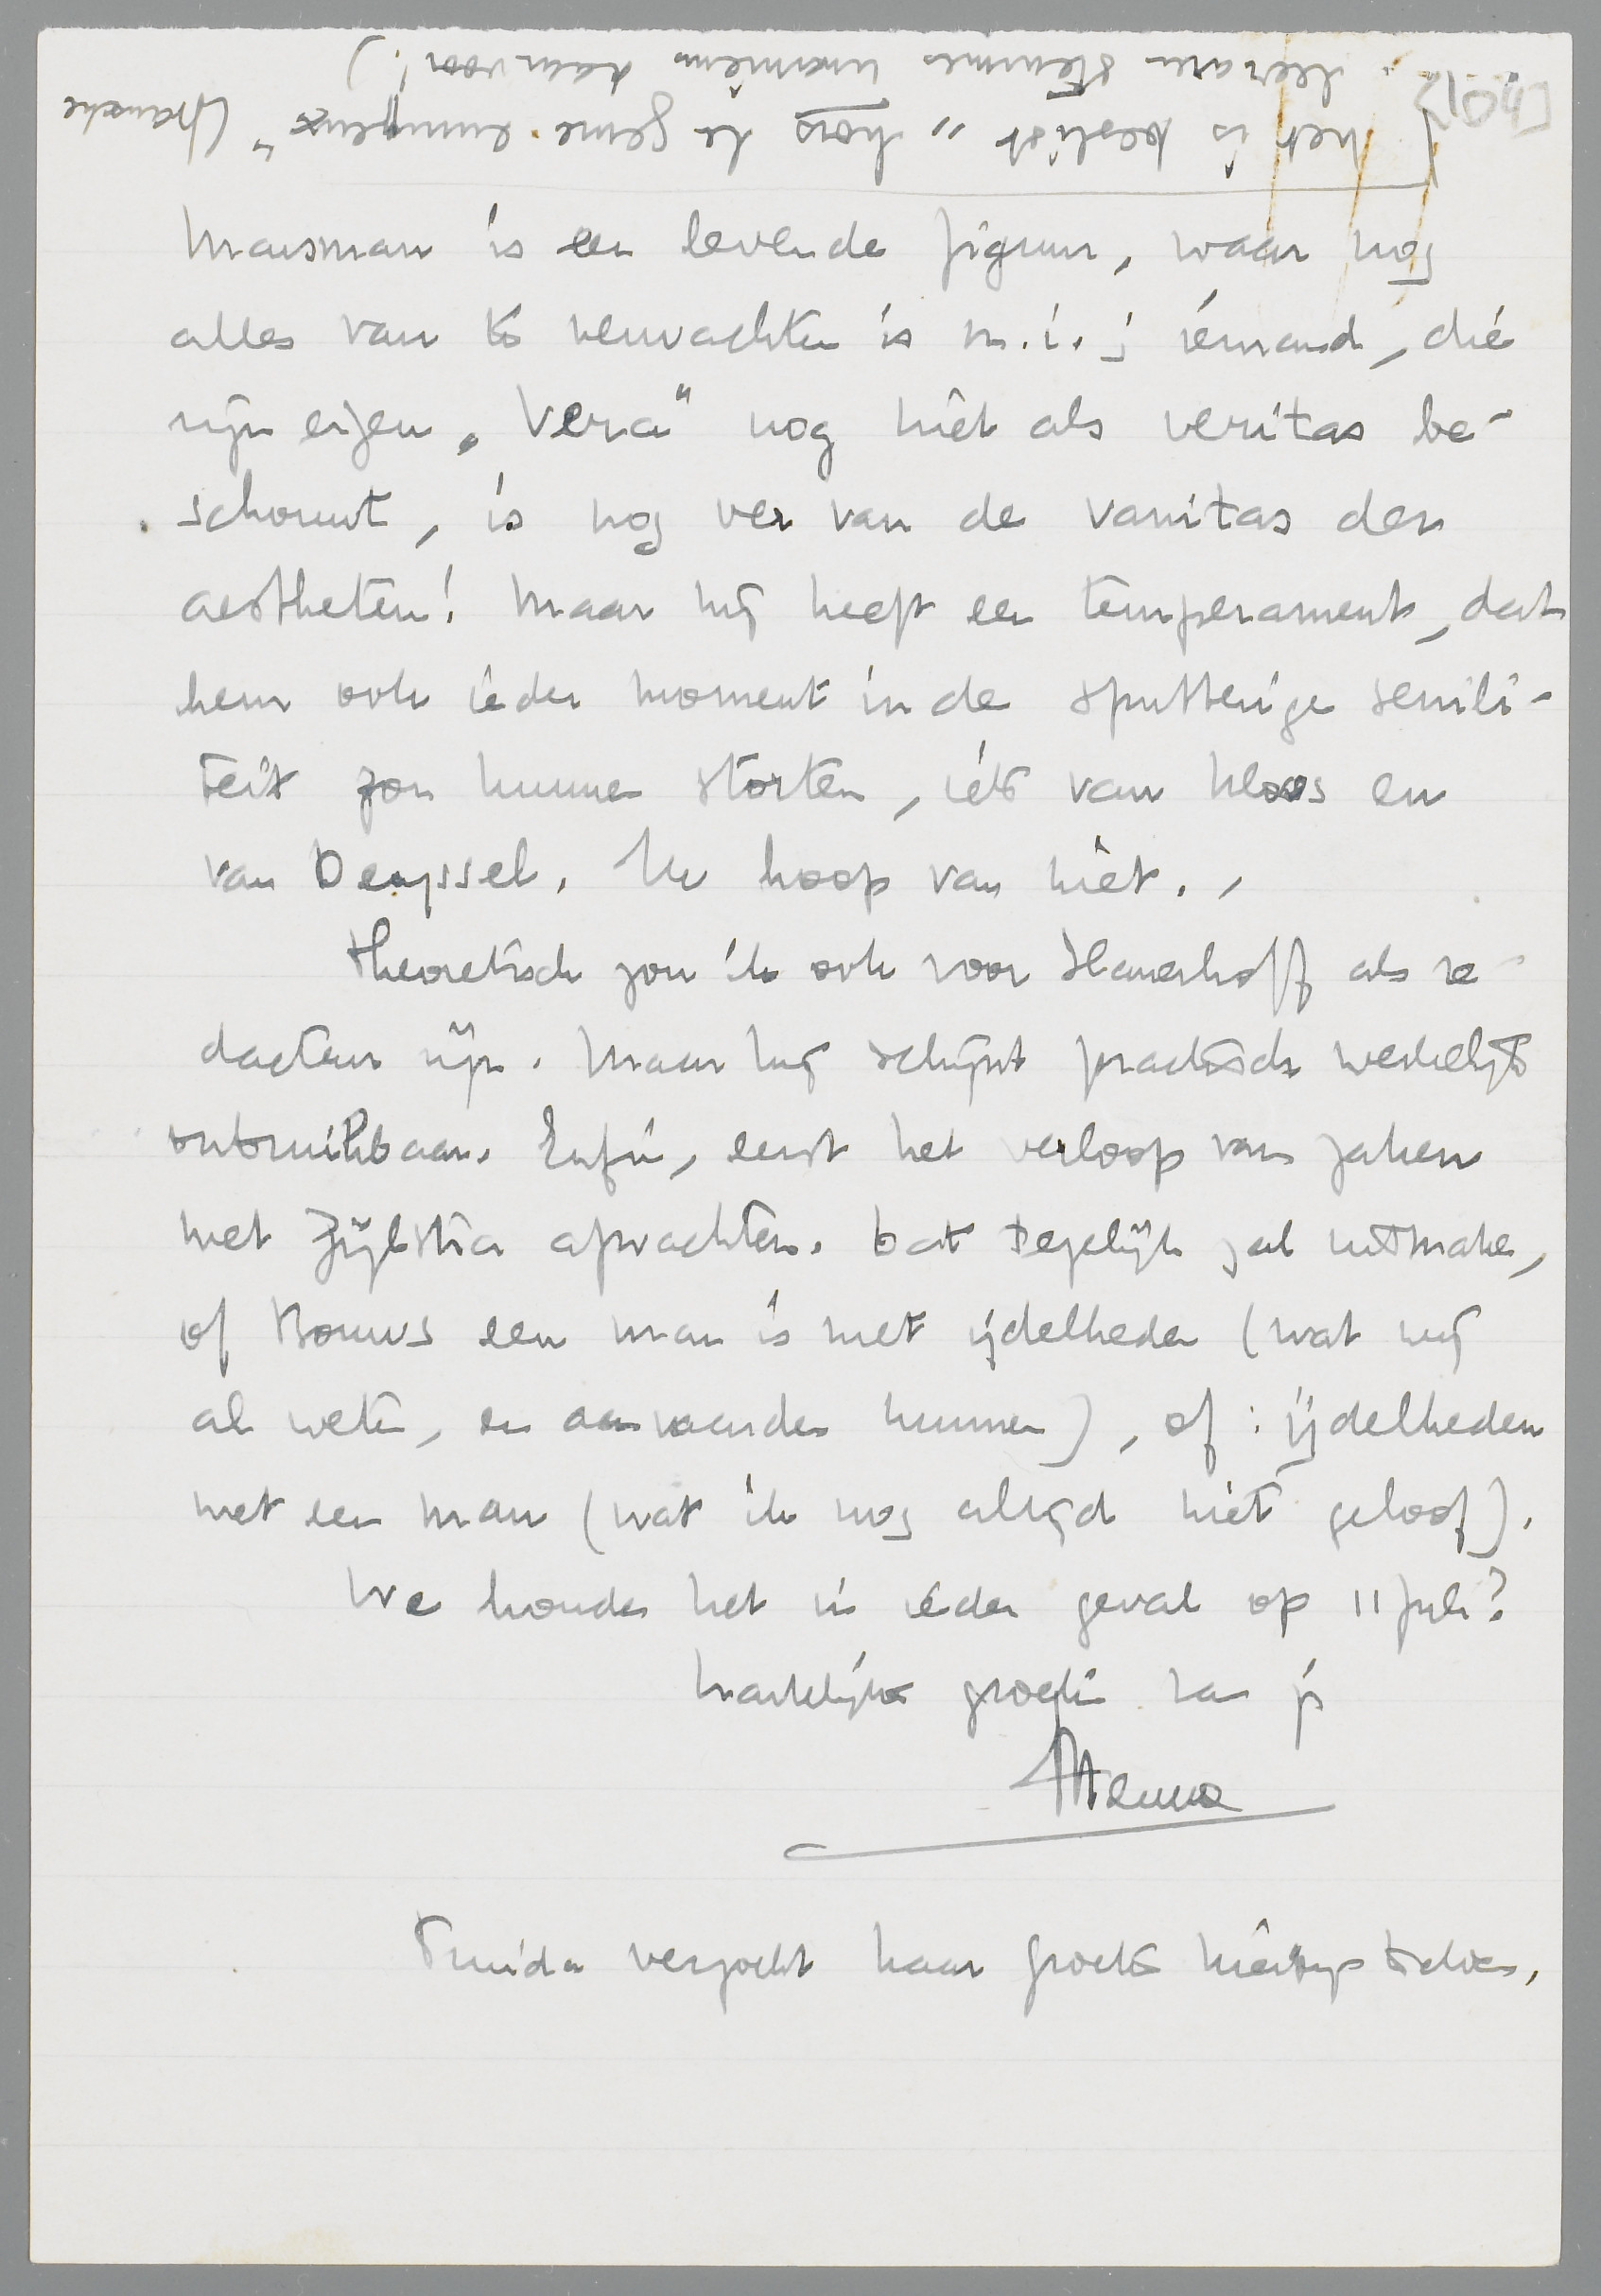 [het is beslist „hors le genre ennuyeux" (fransche
leeraren stemmen unaniem daarvoor!)
Marsman is een levende figuur, waar nog
alles van te verwachten is m.i.; iemand, die
zijn eigen „Vera" nog niet als veritas be-
schouwt, is nog ver van de vanitas der
aestheten! Maar hij heeft een temperament, dat
hem ook ieder moment in de sputterige senili-
teit zou kunnen storten, iets van Kloos en
van Deyssel. Ik hoop van niet.
Theoretisch zou ik ook voor Slauerhoff als re-
dacteur zijn. Maar hij schijnt practisch werkelijk
onbruikbaar. Enfin, eerst het verloop van zaken
met Zijlstra afwachten. Dat degelijk zal uitmaken,
of Bouws een man is met ijdelheden (wat wij
al weten, en aanvaarden kunnen), of: ijdelheden
met een man (wat ik nog altijd niet geloof).
We houden het in ieder geval op 11 Juli?
hartelijke groeten van je
Menno
Truida verzocht haar groeten hierbij te doen.